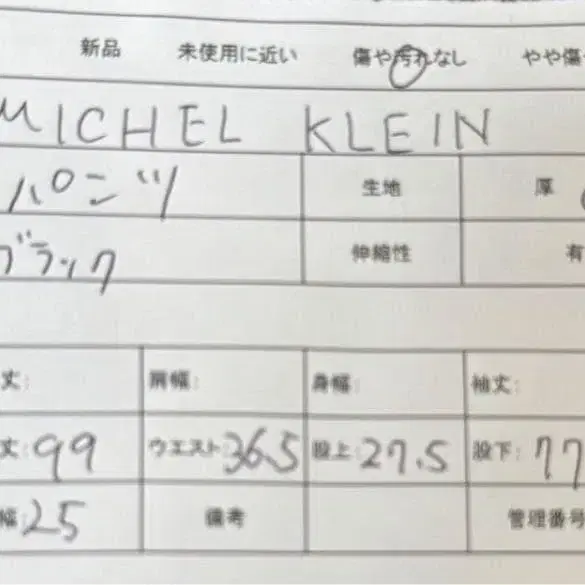 新品 未使用に近い 傷や汚れなし やや傷
MICHEL KLEIN
パンツ 生地 厚
ブラック 伸縮性 有
丈: 肩幅: 身幅: 袖丈:
丈:99 ウエスト:36.5 股上:27.5 股下:77
幅:25 備考 管理番号